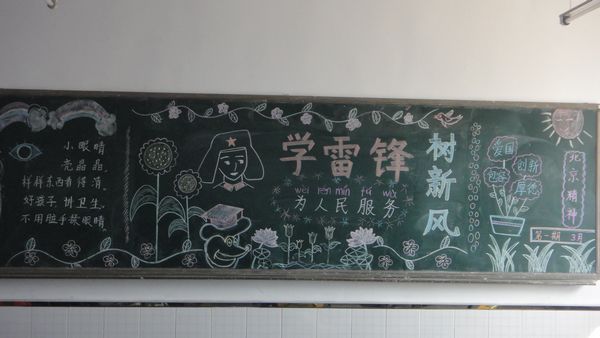 小眼睛
亮晶晶
样样东西看得清
好孩子讲卫生
不用脏手揉眼睛
学雷锋
wèi rén mín fú wù
为人民服务
树新风
爱国
创新
包容
厚德
北京精神
第一期 3月